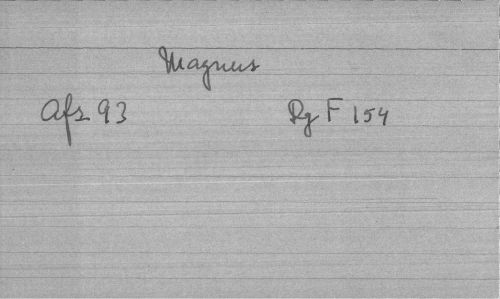 Magnus
Afs 93 Rg F 154